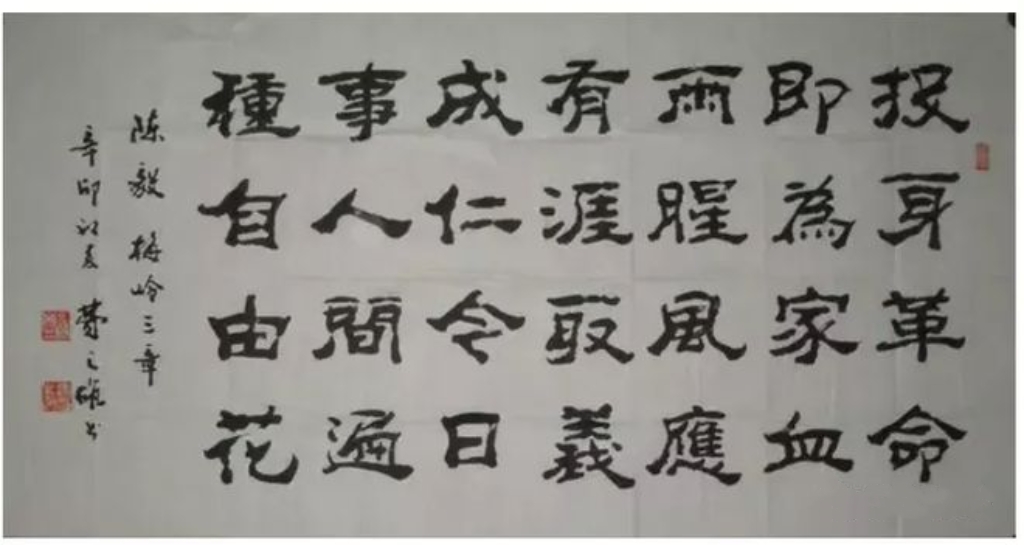 投身革命
即為家血
雨腥風應
有涯取義
成仁今日
事人間遍
種自由花
陈毅 梅岭三章
辛卯初夏 之雄书